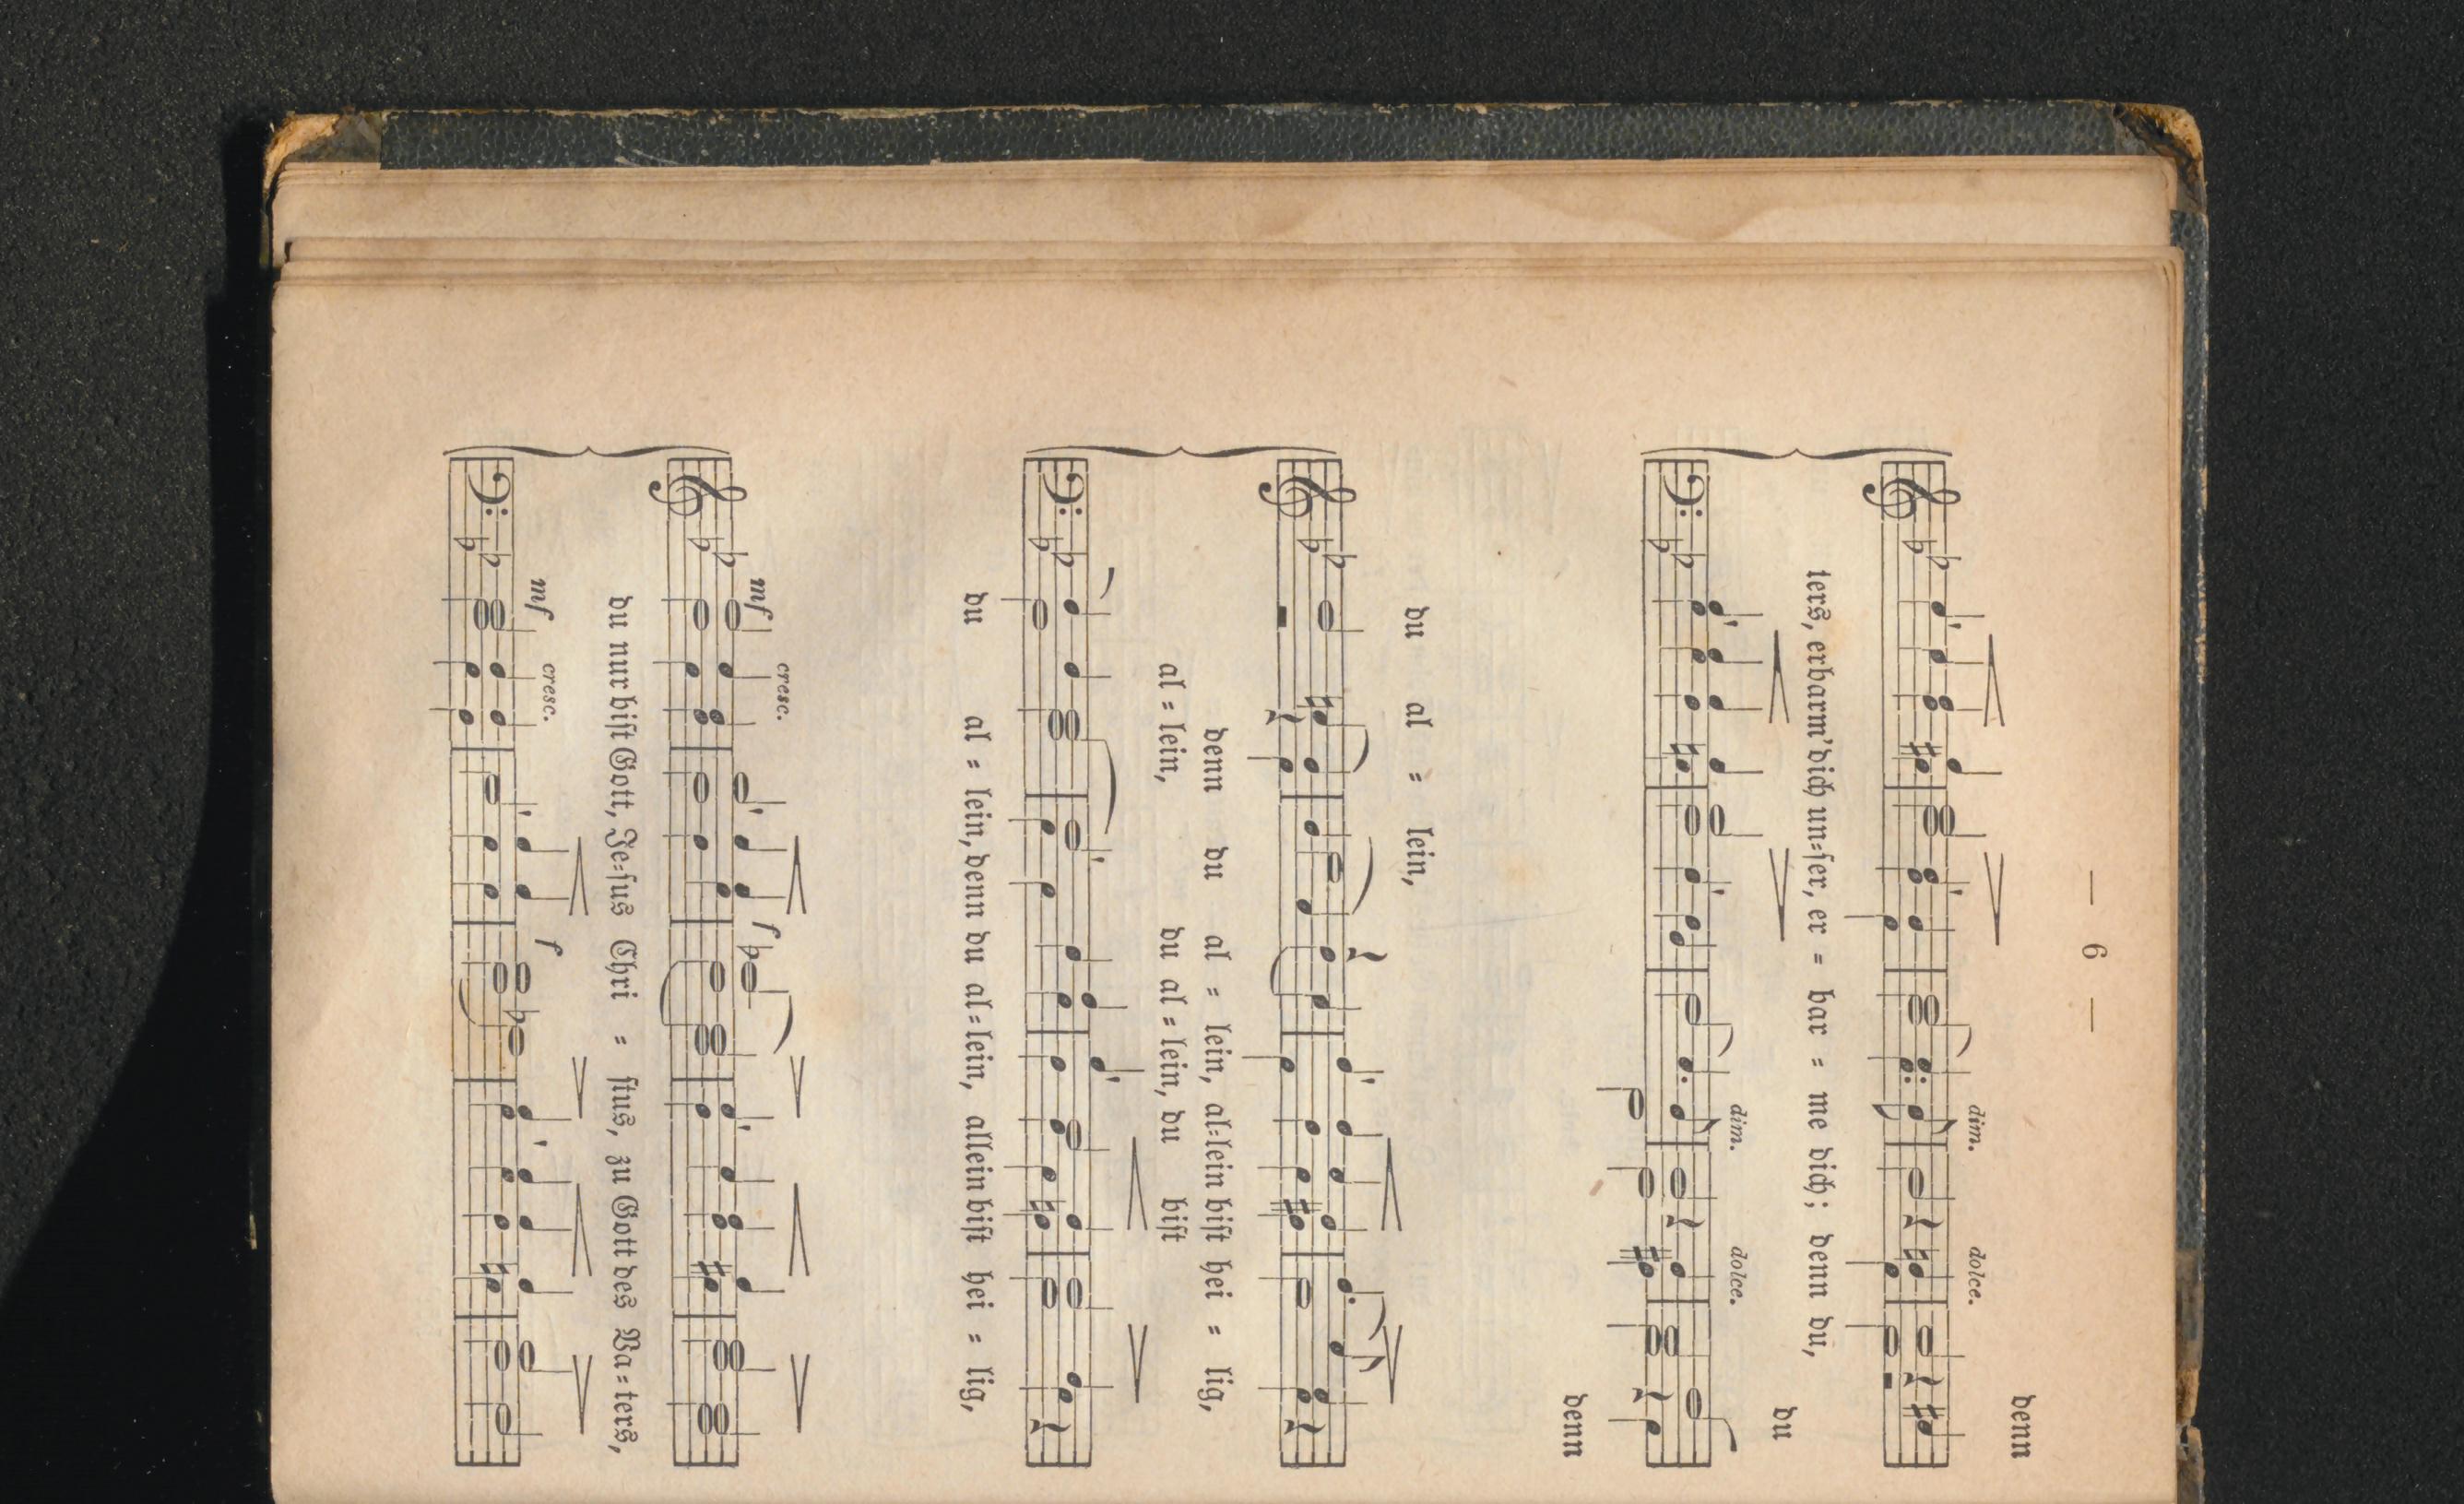 — 6 —
denn
dim. dolce.
ters, erbarm' dich un=ser, er = bar = me dich; denn du,
du
dim. dolce.
denn
du al = lein,
denn du al = lein, al=lein bist hei = lig,
al = lein, du al = lein, du bist
du al = lein, denn du al=lein, allein bist hei = lig,
mf cresc. f
du nur bist Gott, Je=sus Chri = stus, zu Gott des Va=ters,
mf cresc. f